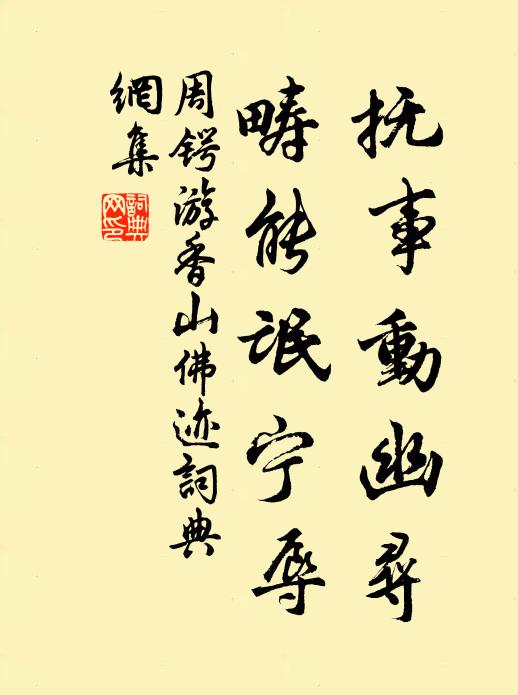 抚事動幽尋
畴能氓宁辱
周锷游香山佛迹詞典
網集
詞典网印